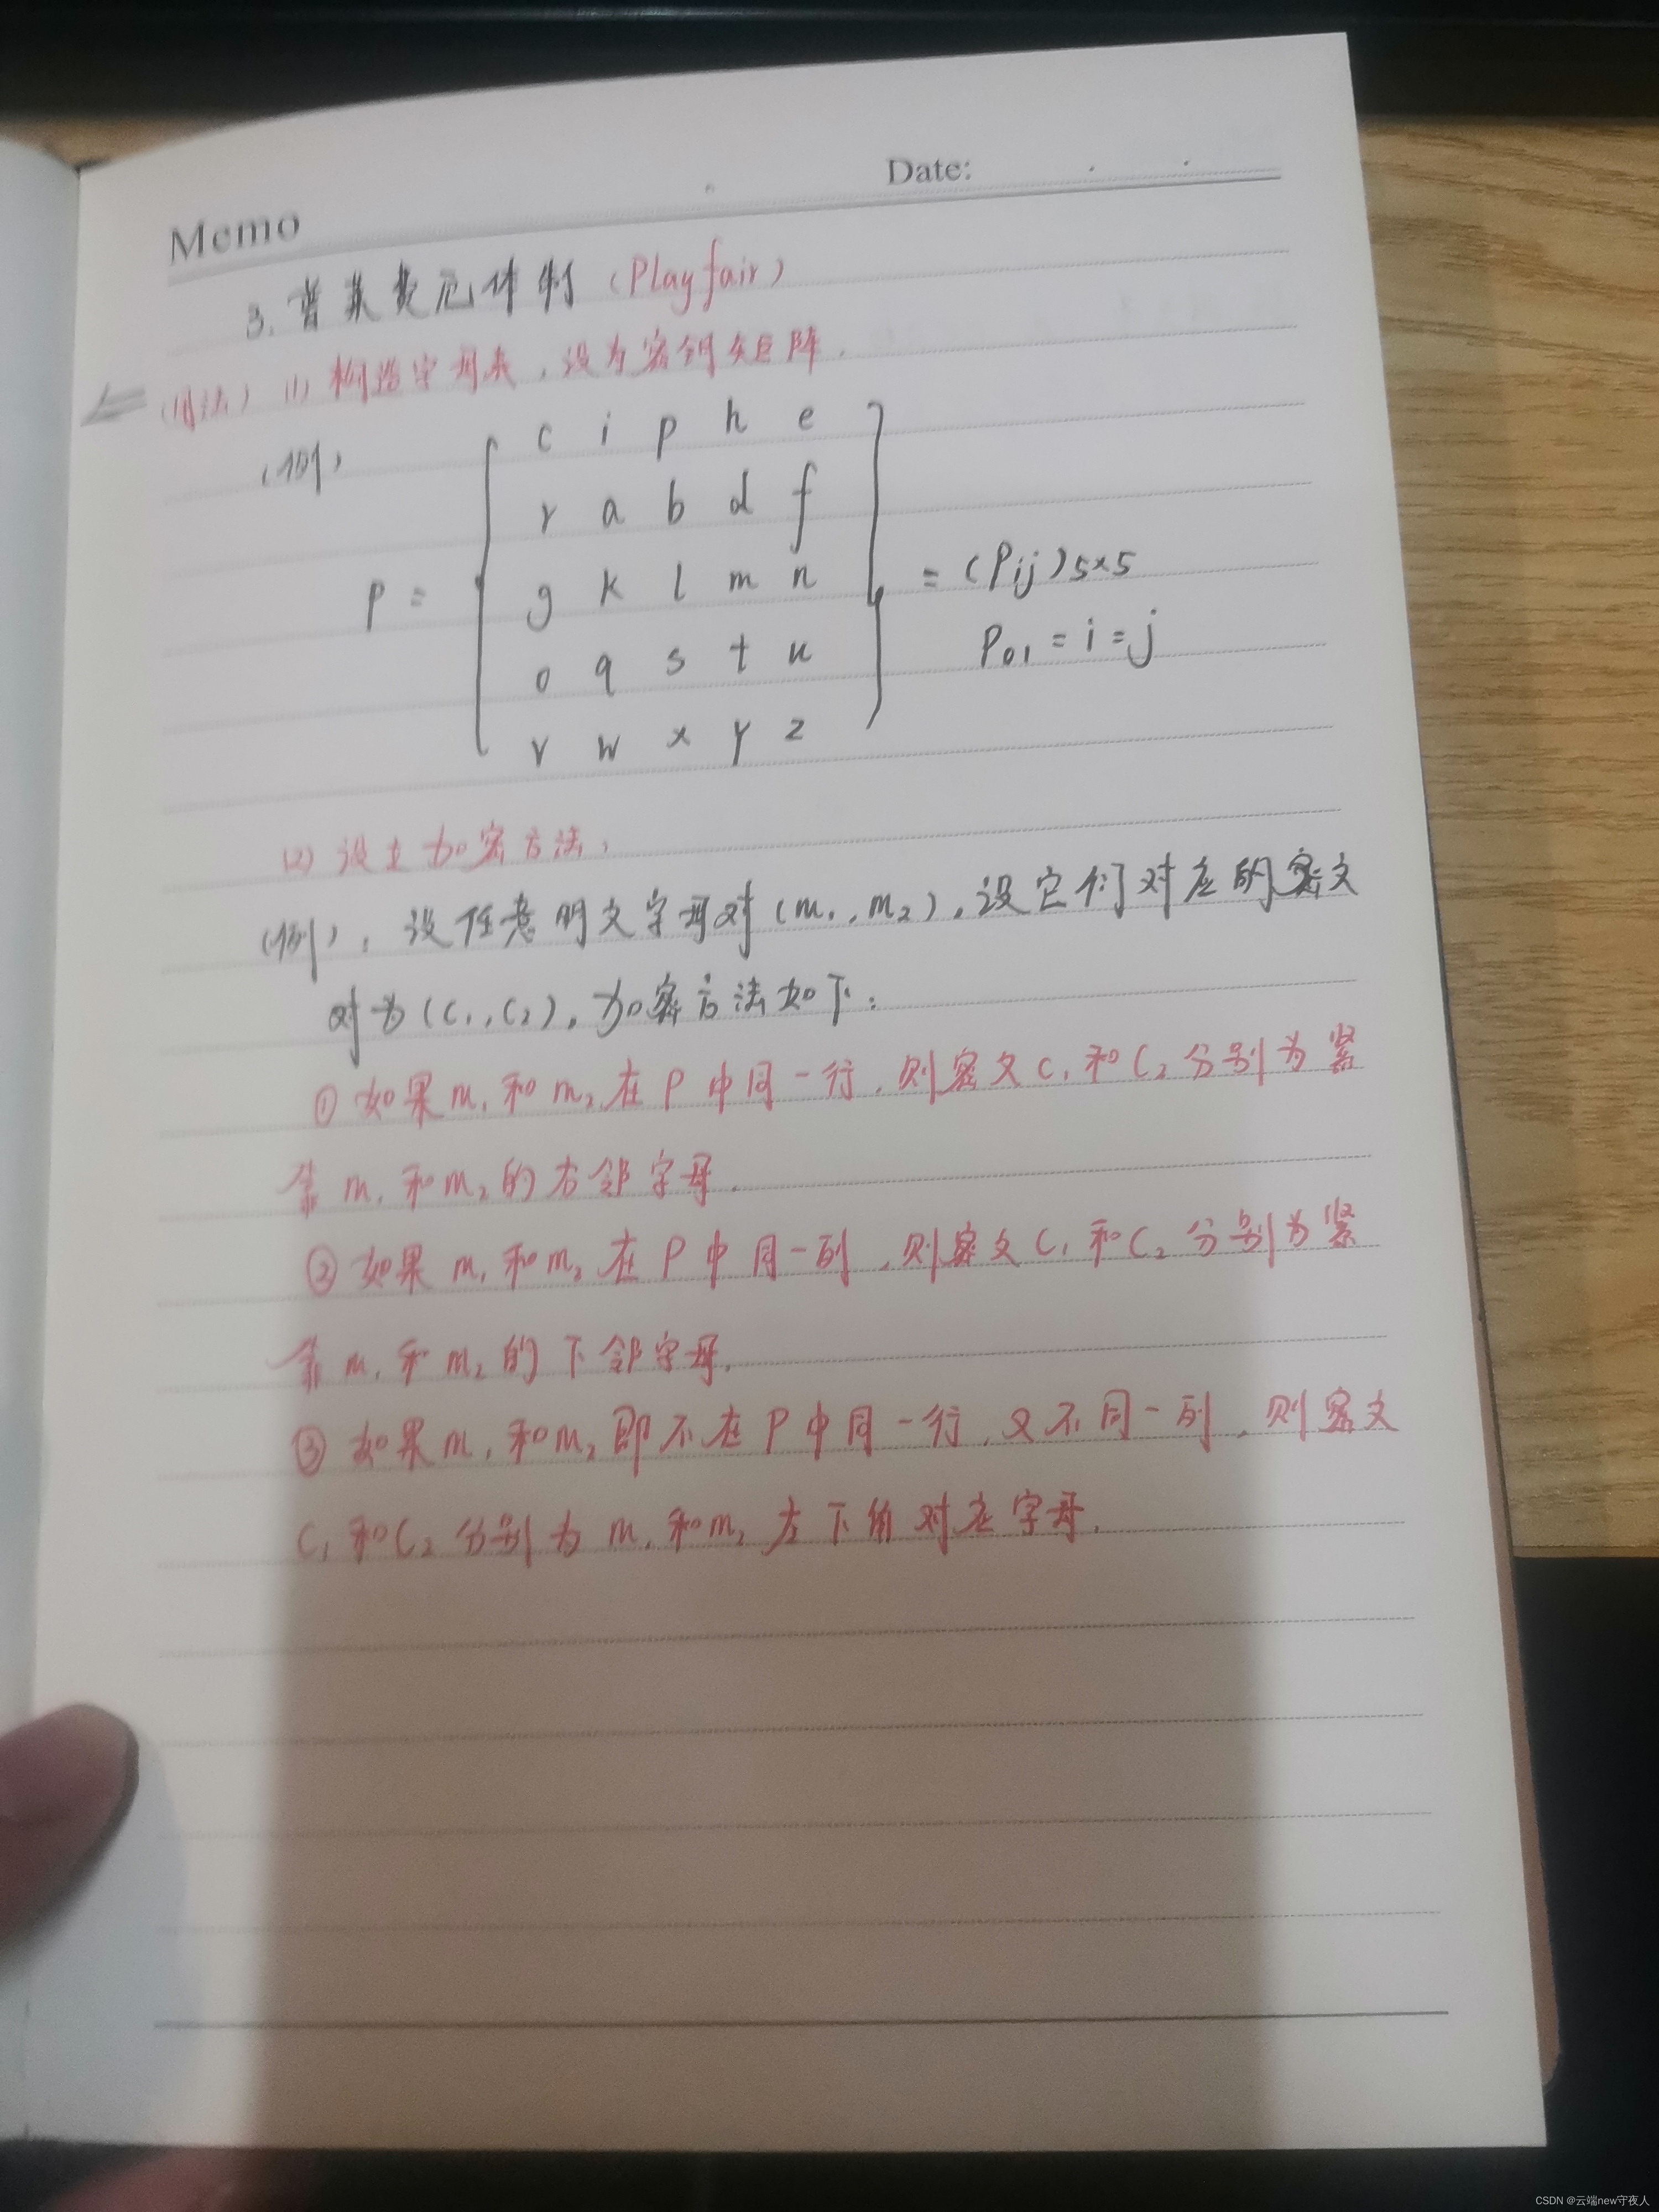 Date:
Memo
3. 普莱费厄体制 (Playfair)
(用法) (1) 构造字母表,设为密钥矩阵.
(例)
c i p h e
r a b d f
P = g k l m n = (Pij)5×5
o q s t u P01 = i = j
v w x y z
(2) 设立加密方法,
(例), 设任意明文字母对(m1,m2),设它们对应的密文
对为(C1,C2),加密方法如下:
① 如果m1和m2在P中同一行,则密文C1和C2分别为紧
靠m1和m2的右邻字母.
② 如果m1和m2在P中同一列,则密文C1和C2分别为紧
靠m1和m2的下邻字母.
③ 如果m1和m2即不在P中同一行,又不同一列,则密文
C1和C2分别为m1和m2左下角对应字母.
CSDN @云端new守夜人